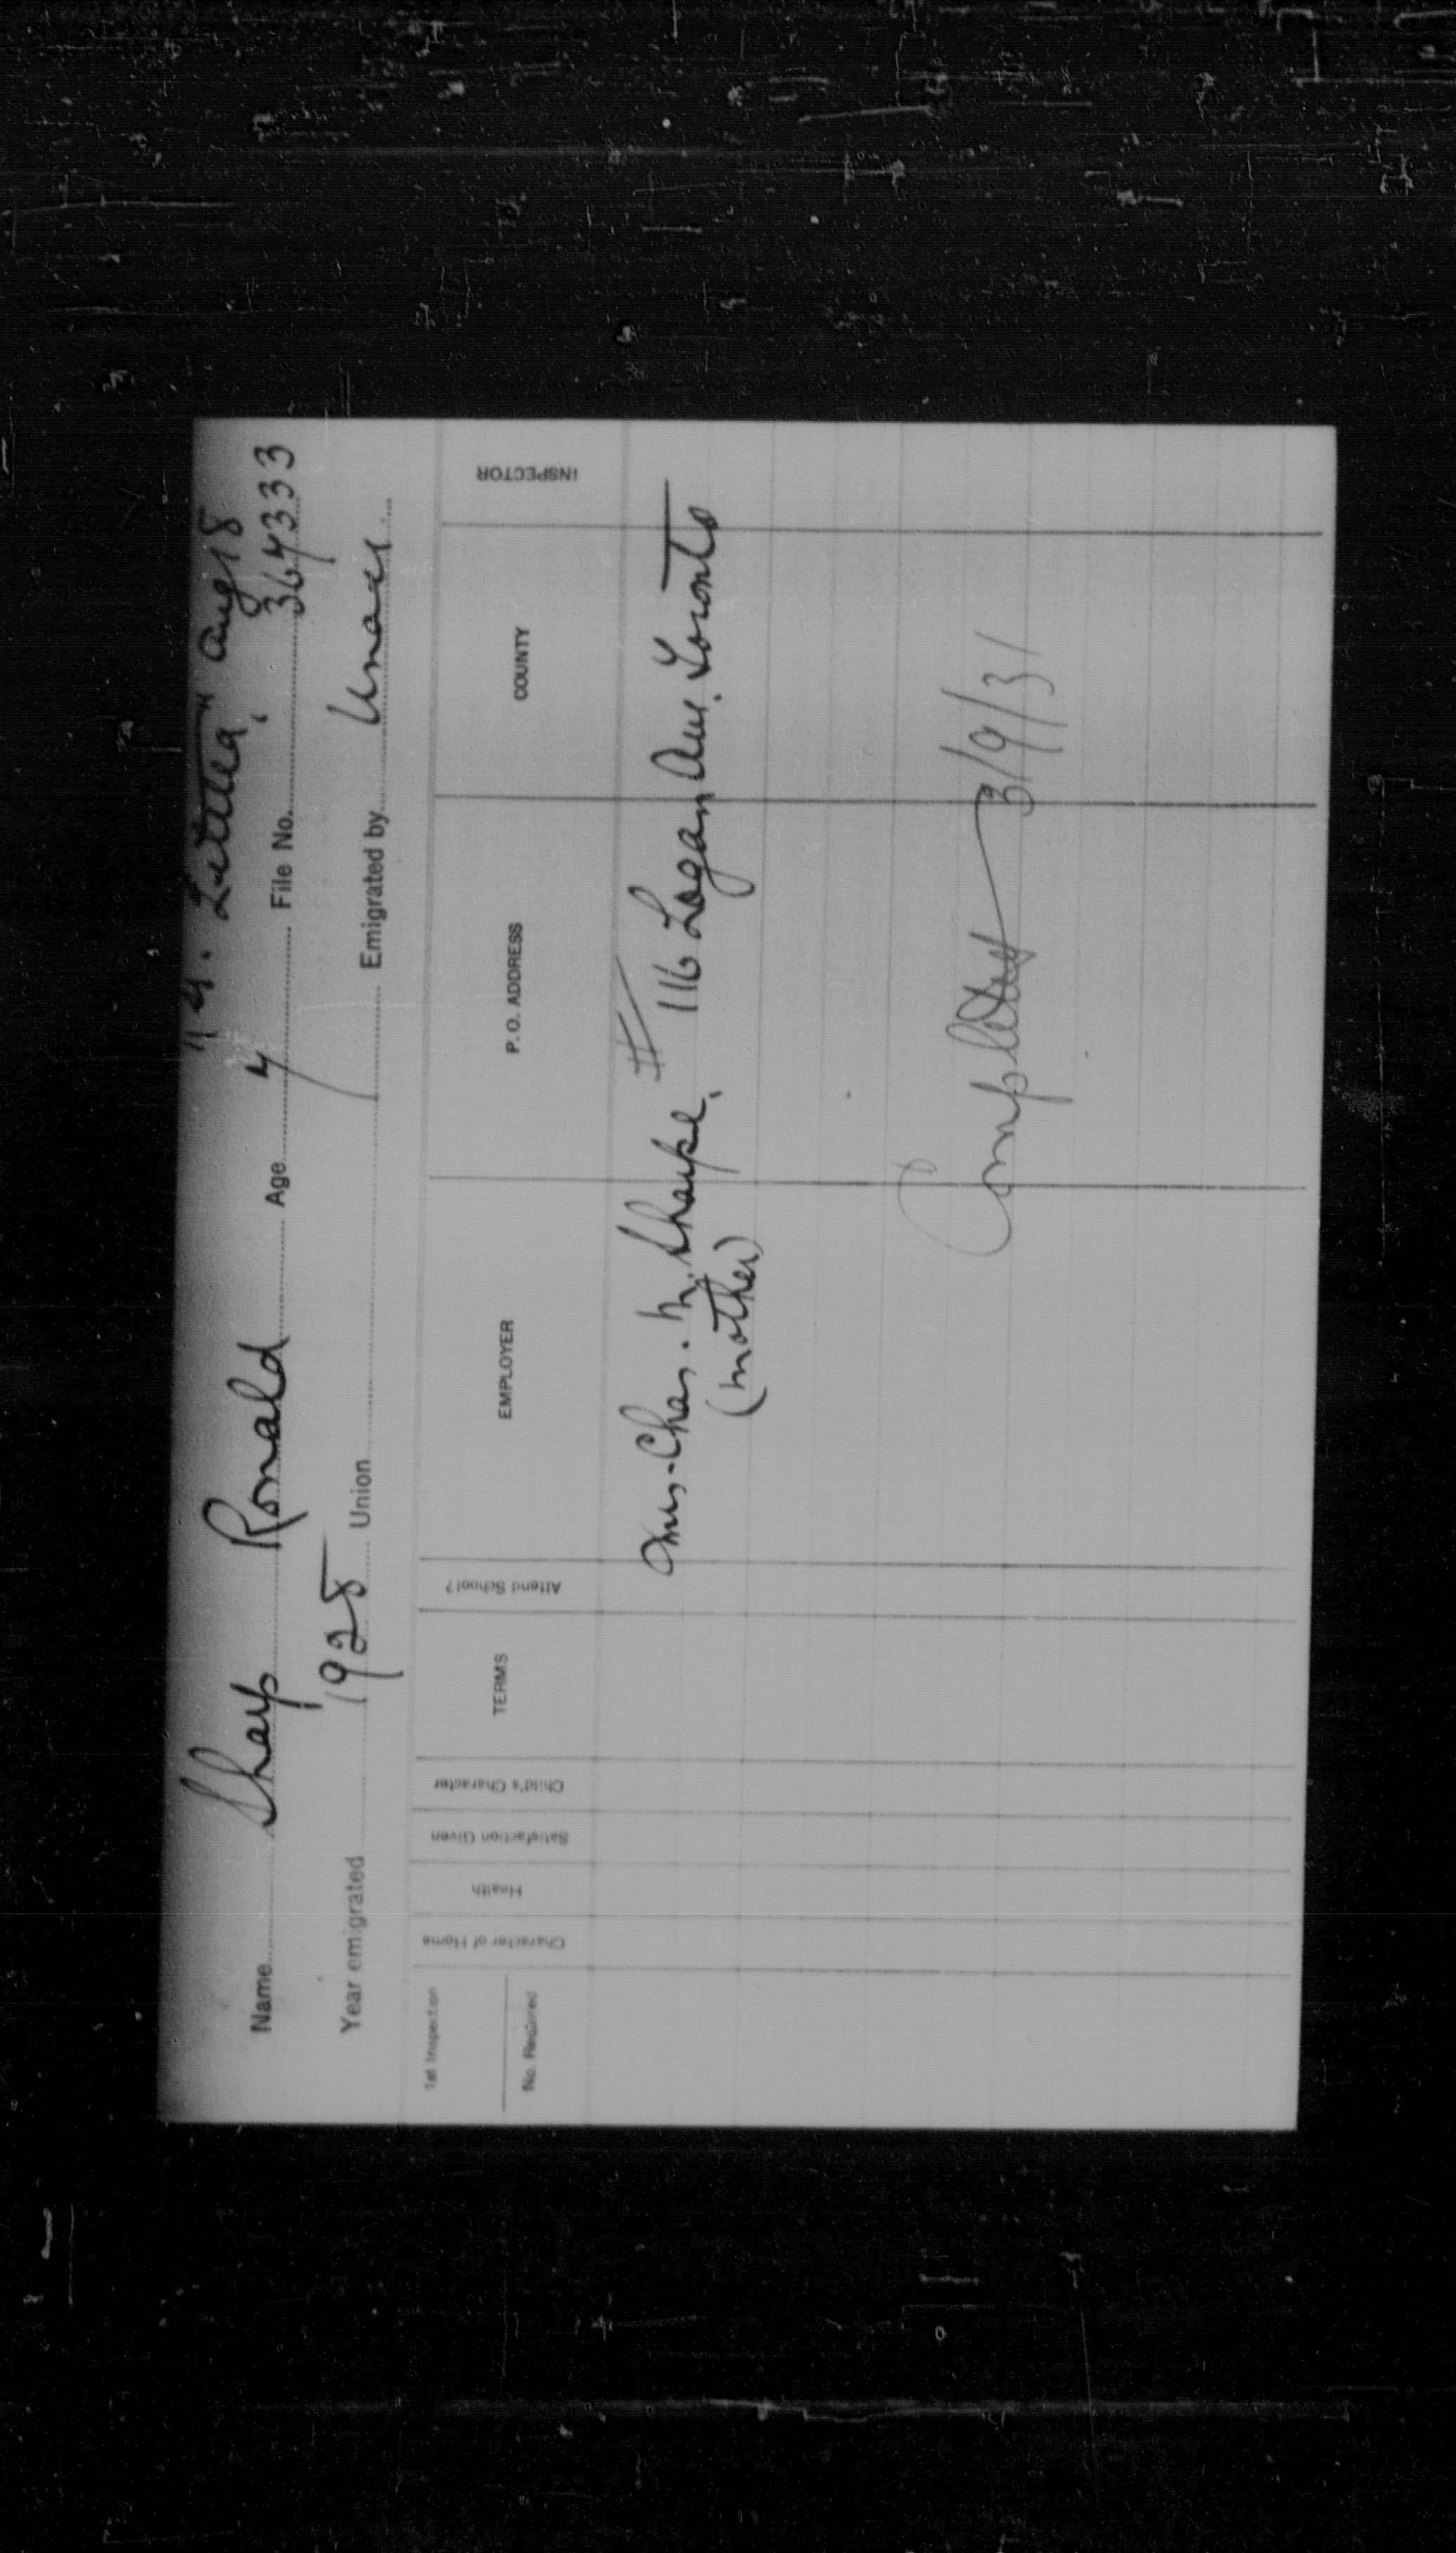 Letitia" Aug 18
Name Sharp Ronald Age 4 File No. 364333
Year emigrated 1928 Union Emigrated by Unacc
1st Inspection No. Required Character of Home Health Satisfaction Given Child's Character TERMS Attend School? EMPLOYER P. O. ADDRESS COUNTY INSPECTOR
Mrs. Chas. M. Sharpe, # 116 Logan Ave. Toronto
(mother)
Completed 31/9/31